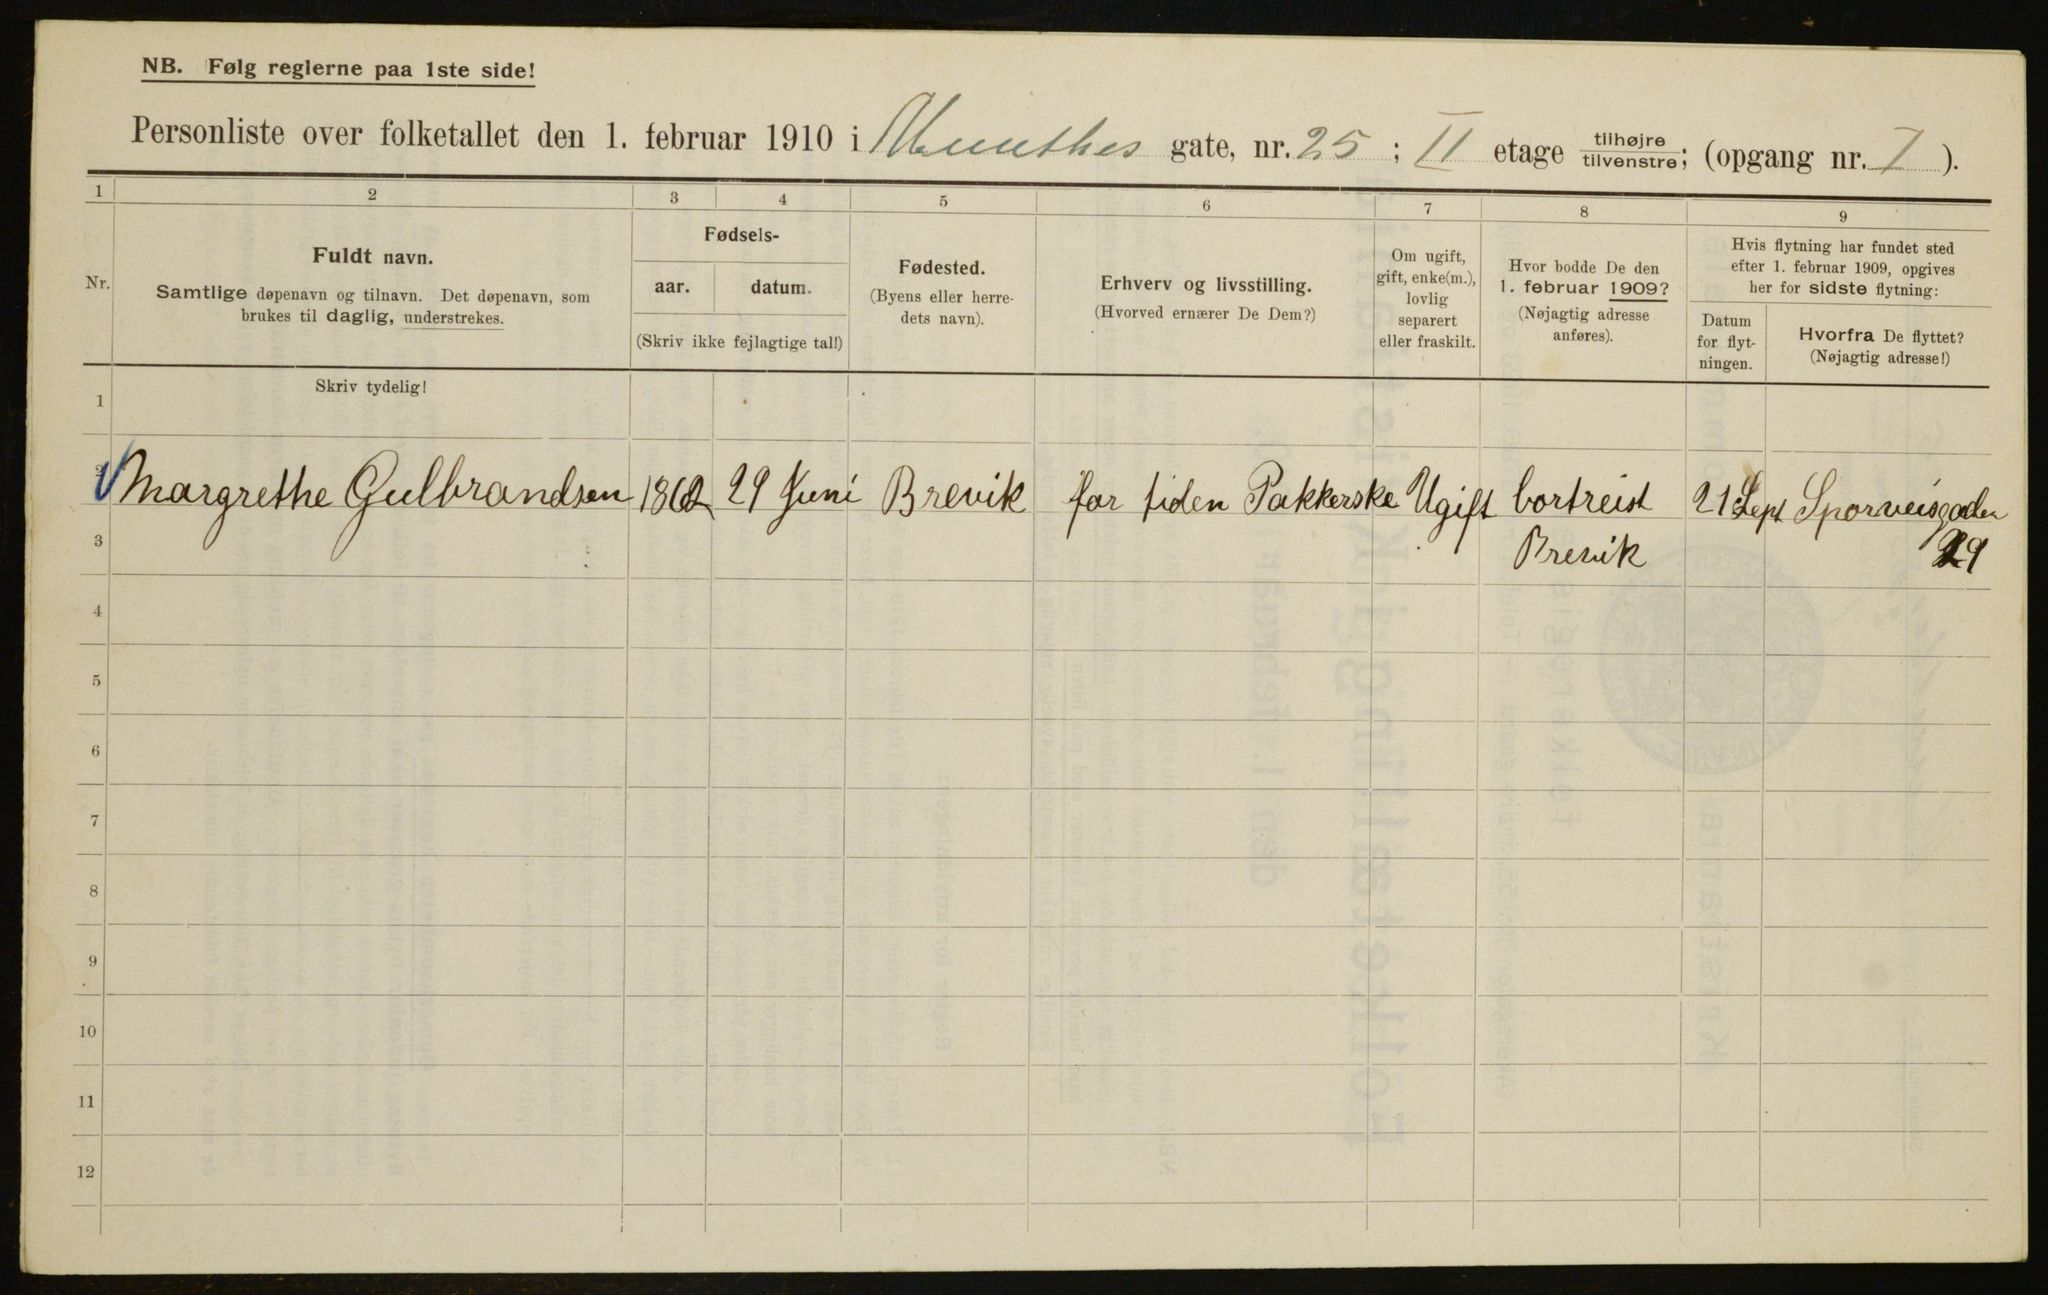 NB. Følg reglerne paa 1ste side!
Personliste over folketallet den 1. februar 1910 i Munthes gate, nr. 25 ; II etage tilhøjre tilvenstre; (opgang nr. I ).
1 2 3 4 5 6 7 8 9
Nr.
Fuldt navn.
Samtlige døpenavn og tilnavn. Det døpenavn, som
brukes til daglig, understrekes.
Fødsels-
aar. datum.
(Skriv ikke fejlagtige tal!)
Fødested.
(Byens eller herre-
dets navn).
Erhverv og livsstilling.
(Hvorved ernærer De Dem?)
Om ugift,
gift, enke(m.),
lovlig
separert
eller fraskilt.
Hvor bodde De den
1. februar 1909?
(Nøjagtig adresse
anføres).
Hvis flytning har fundet sted
efter 1. februar 1909, opgives
her for sidste flytning:
Datum
for flyt-
ningen.
Hvorfra De flyttet?
(Nøjagtig adresse!)
Skriv tydelig!
1
2 Margrethe Gulbrandsen 1862 29 Juni Brevik for tiden Pakkerske Ugift bortreist 21 Sept Sporveisgaden
3 Brevik 29
4
5
6
7
8
9
10
11
12